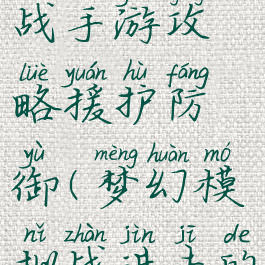 战手游攻
lüè yuán hù fáng
略援护防
yù mèng huàn mó
御(梦幻模
nǐ zhàn jìn jī de
拟战进击的